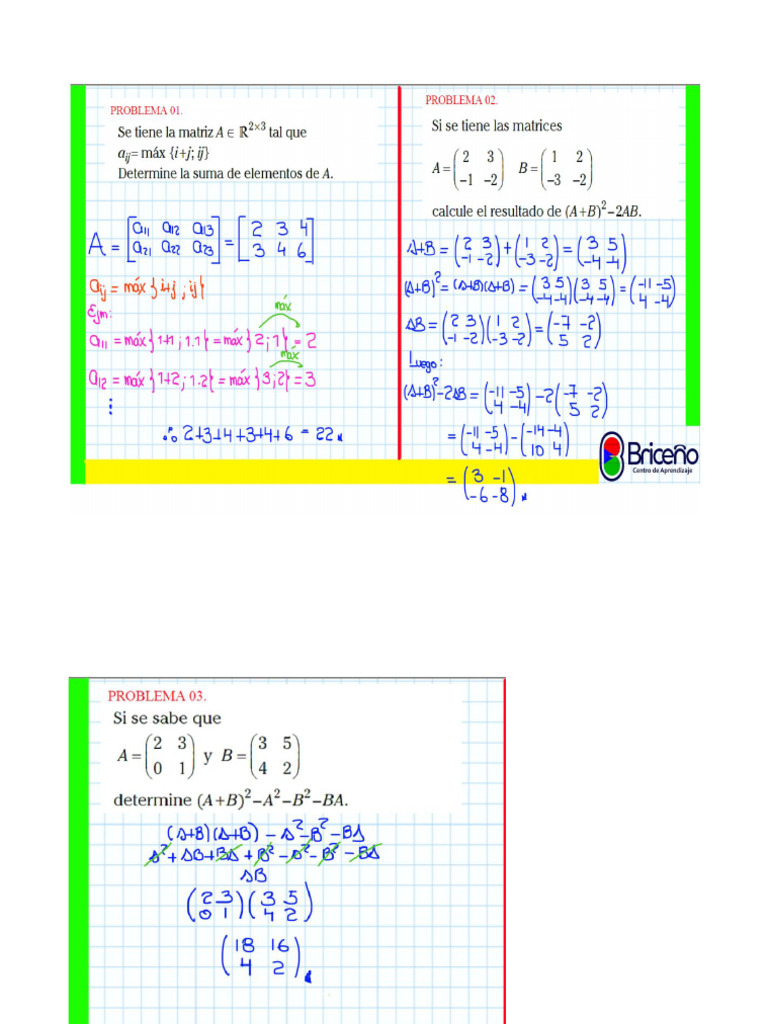 PROBLEMA 01.
Se tiene la matriz A ∈ ℝ^{2×3} tal que
a_{ij} = máx {i+j; ij}
Determine la suma de elementos de A.
A = [a11 a12 a13; a21 a22 a23] = [2 3 4; 3 4 6]
aij = máx{i+j; ij}
Ejm:
a11 = máx{1+1; 1.1} = máx{2; 1} = 2
máx
a12 = máx{1+2; 1.2} = máx{3; 2} = 3
máx
⋮
∴ 2+3+4+3+4+6 = 22
PROBLEMA 02.
Si se tiene las matrices
A = (2 3; −1 −2) B = (1 2; −3 −2)
calcule el resultado de (A+B)²−2AB.
A+B = (2 3; -1 -2) + (1 2; -3 -2) = (3 5; -4 -4)
(A+B)² = (A+B)(A+B) = (3 5; -4 -4)(3 5; -4 -4) = (-11 -5; 4 -4)
AB = (2 3; -1 -2)(1 2; -3 -2) = (-7 -2; 5 2)
Luego:
(A+B)² - 2AB = (-11 -5; 4 -4) - 2(-7 -2; 5 2)
= (-11 -5; 4 -4) - (-14 -4; 10 4)
= (3 -1; -6 -8)
Briceño
Centro de Aprendizaje
PROBLEMA 03.
Si se sabe que
A = (2 3; 0 1) y B = (3 5; 4 2)
determine (A+B)²−A²−B²−BA.
(A+B)(A+B) - A² - B² - BA
A² + AB + BA + B² - A² - B² - BA
AB
(2 3; 0 1)(3 5; 4 2)
(18 16; 4 2)